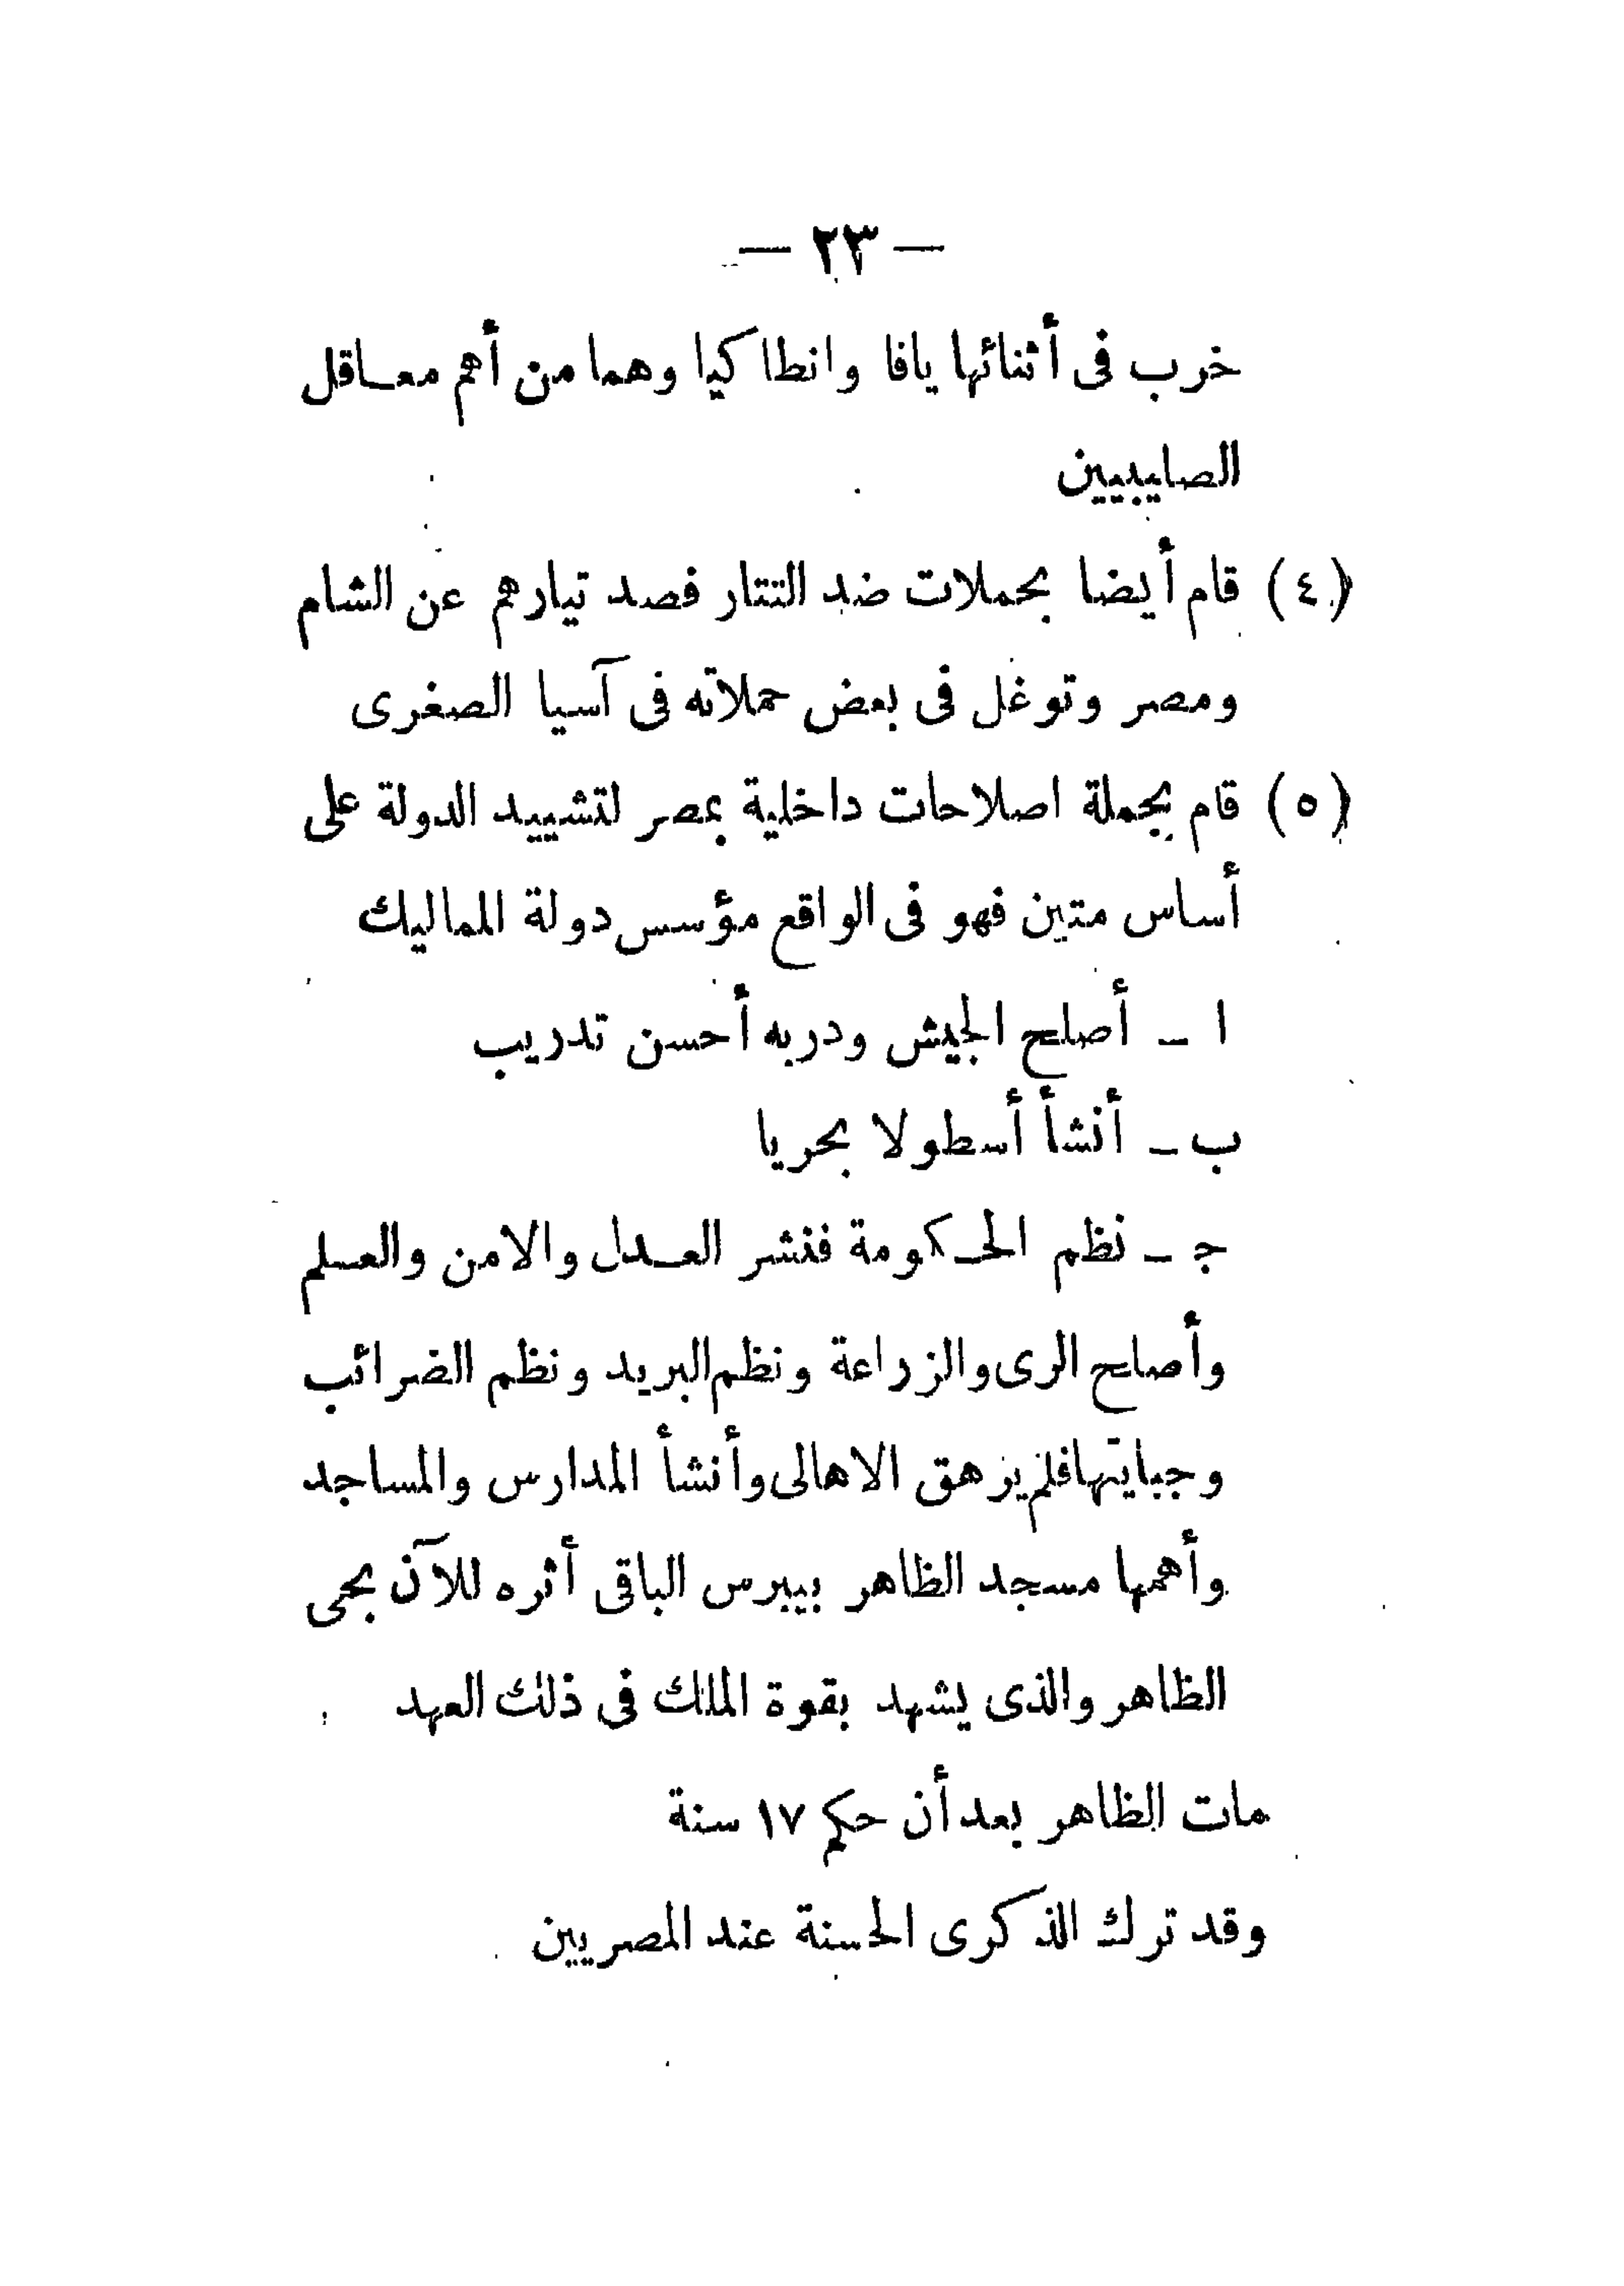 — ٢٣ —
خرب فى أثنائها يافا وانطاكيا وهما من أهم معاقل
الصليبيين
(٤) قام أيضا بحملات ضد التتار فصد تيارهم عن الشام
ومصر وتوغل فى بعض حملاته فى آسيا الصغرى
(٥) قام بجملة اصلاحات داخلية بمصر لتشييد الدولة على
أساس متين فهو فى الواقع مؤسس دولة المماليك
ا – أصلح الجيش ودربه أحسن تدريب
ب – أنشأ أسطولا بحريا
ج – نظم الحكومة فنشر العدل والامن والعلم
وأصلح الرى والزراعة ونظم البريد ونظم الضرائب
وجبايتها فلم يزهق الاهالى وأنشأ المدارس والمساجد
وأهمها مسجد الظاهر بيبرس الباقى أثره للآن بحى
الظاهر والذى يشهد بقوة الملك فى ذلك العهد
مات الظاهر بعد أن حكم ١٧ سنة
وقد ترك الذكرى الحسنة عند المصريين